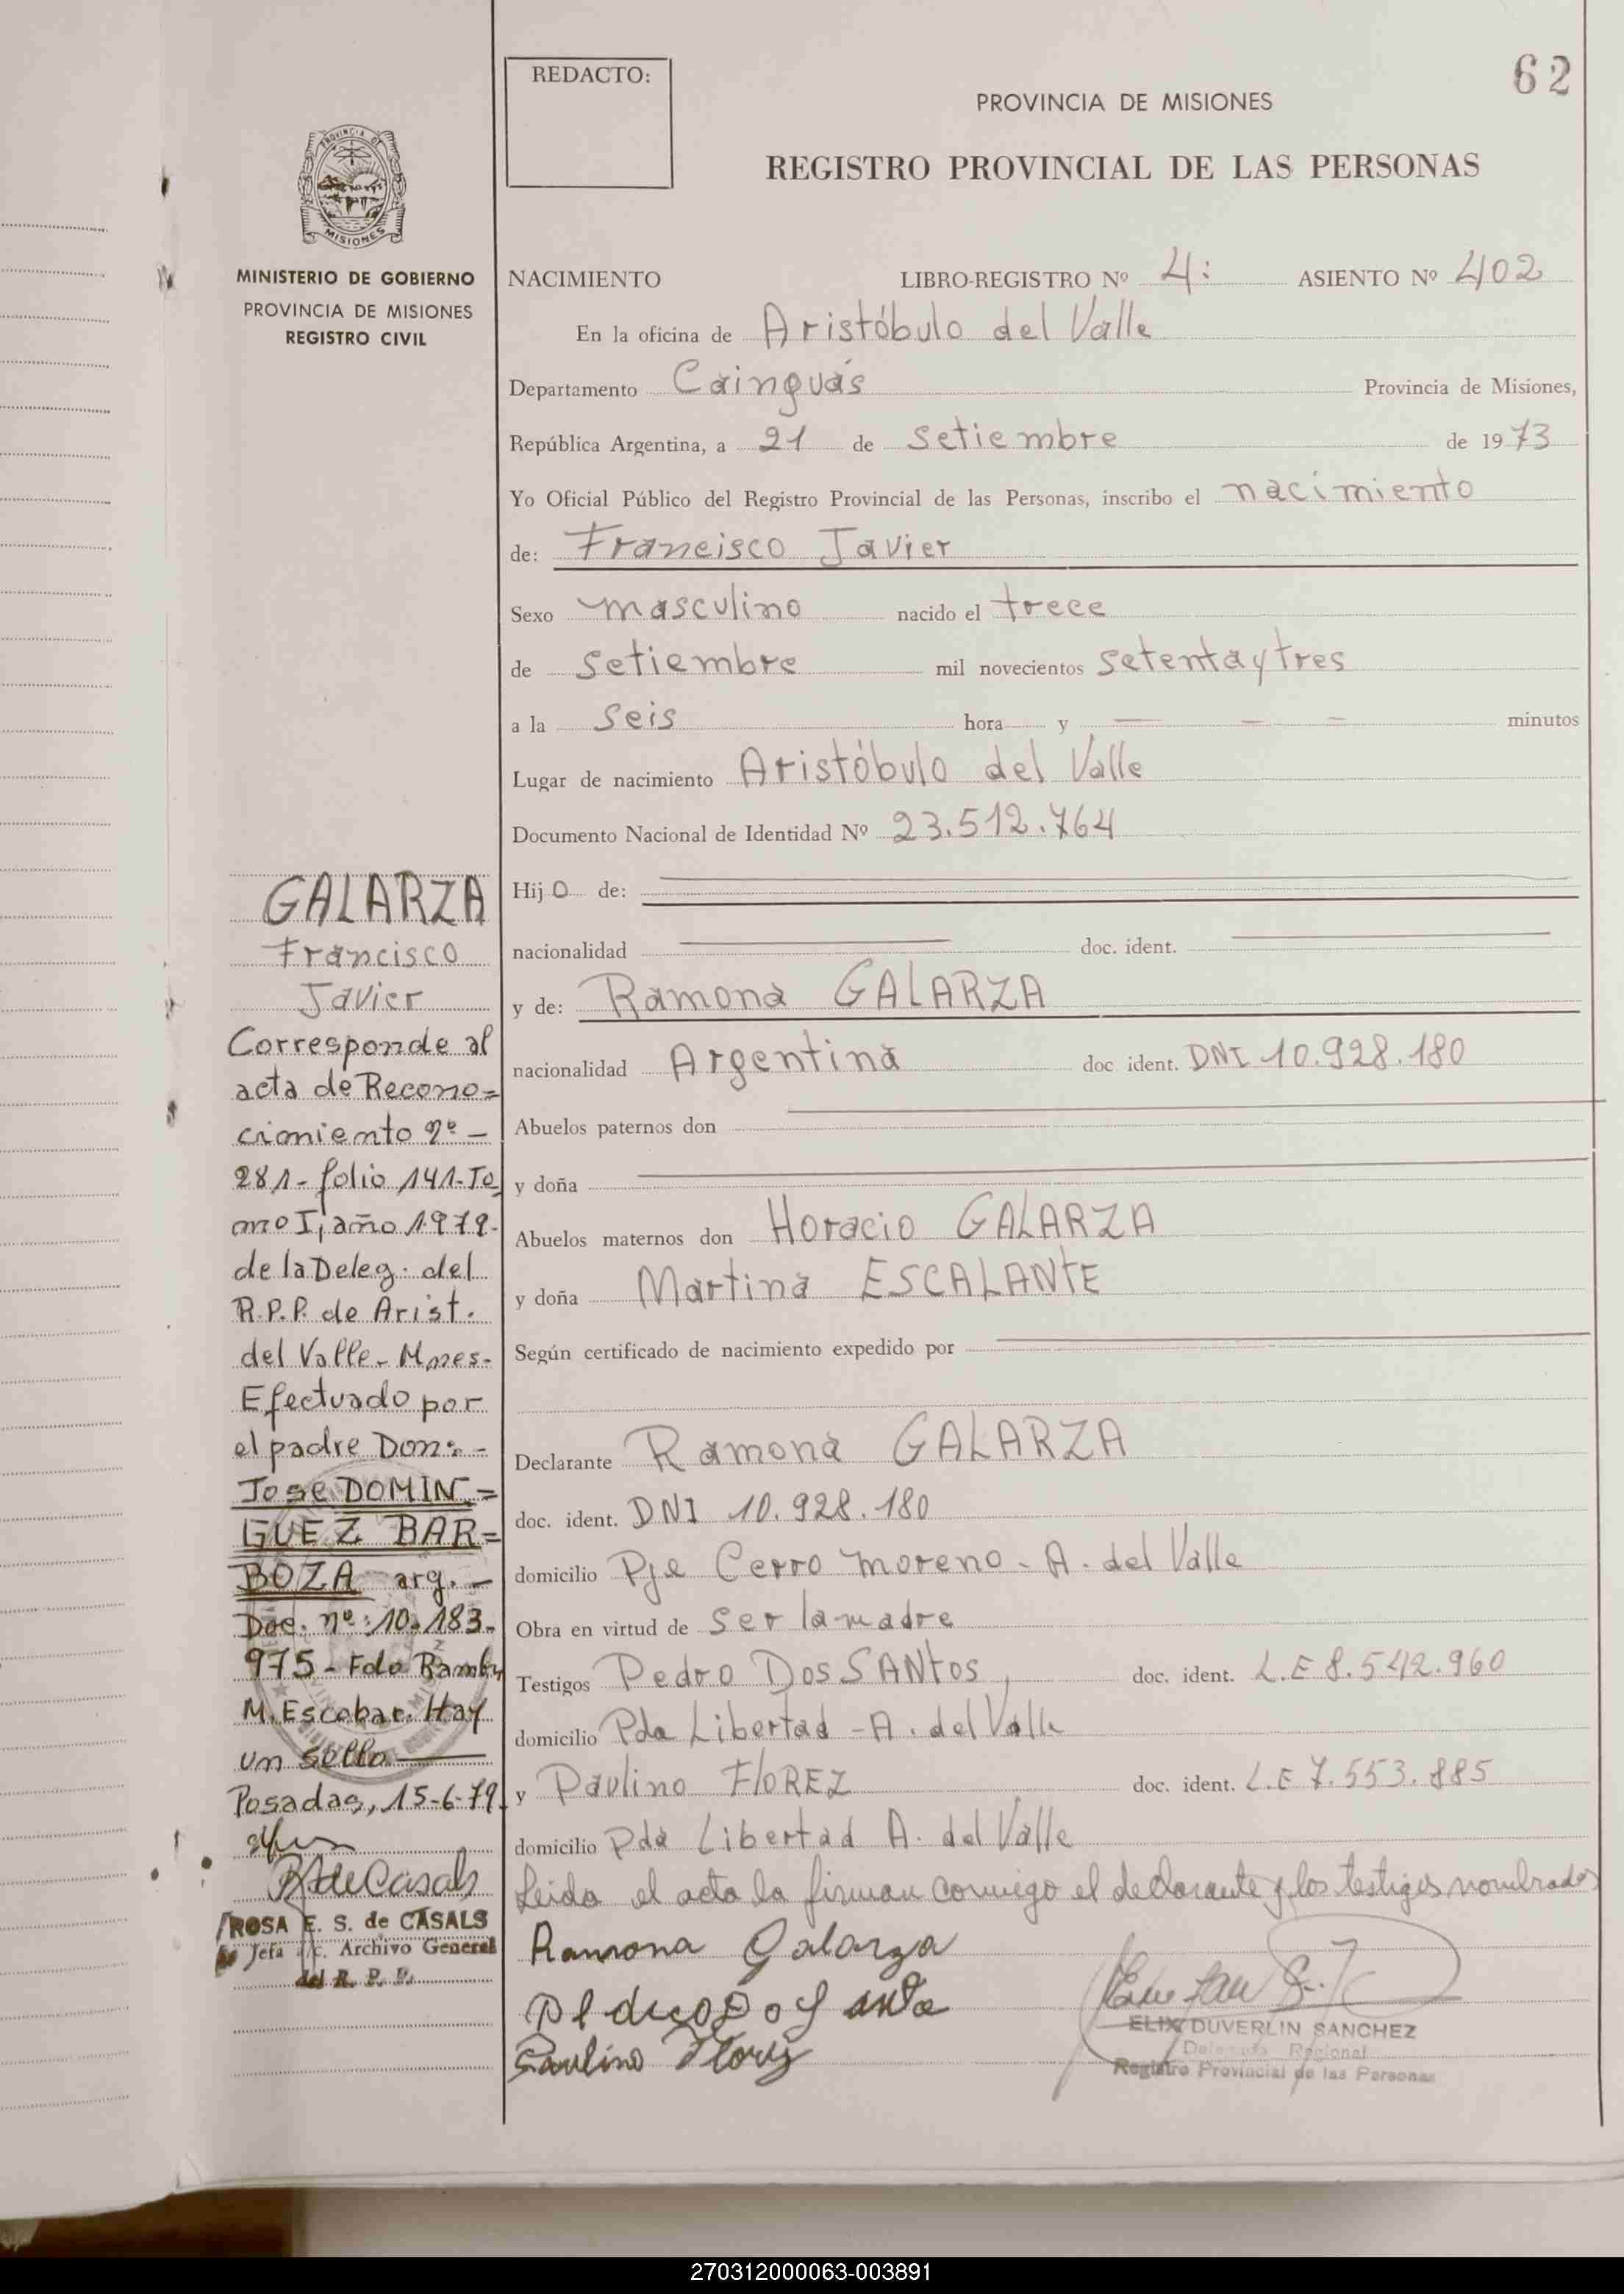 REDACTO:
62
PROVINCIA DE MISIONES
REGISTRO PROVINCIAL DE LAS PERSONAS
PROVINCIA DE
MISIONES
MINISTERIO DE GOBIERNO
PROVINCIA DE MISIONES
REGISTRO CIVIL
NACIMIENTO LIBRO-REGISTRO Nº 4: ASIENTO Nº 402
En la oficina de Aristóbulo del Valle
Departamento Cainguás Provincia de Misiones,
República Argentina, a 21 de setiembre de 1973
Yo Oficial Público del Registro Provincial de las Personas, inscribo el nacimiento
de: Francisco Javier
Sexo masculino nacido el trece
de setiembre mil novecientos setentaytres
a la seis hora y — — — minutos
Lugar de nacimiento Aristóbulo del Valle
Documento Nacional de Identidad Nº 23.512.764
Hijo de:
nacionalidad doc. ident.
y de: Ramona GALARZA
nacionalidad Argentina doc ident. DNI 10.928.180
Abuelos paternos don
y doña
Abuelos maternos don Horacio GALARZA
y doña Martina ESCALANTE
Según certificado de nacimiento expedido por
Declarante Ramona GALARZA
doc. ident. DNI 10.928.180
domicilio Pje Cerro moreno - A. del Valle
Obra en virtud de ser la madre
Testigos Pedro Dos SANtos, doc. ident. L.E 8.542.960
domicilio Pda Libertad - A. del Valle
y Paulino FloREZ doc. ident. L.E 7.553.885
domicilio Pda Libertad A. del Valle
Leida el acta la firman conmigo el declarante y los testigos nombrados
Ramona Galarza
Paulino Flory
ELIX DUVERLIN SANCHEZ
Delegado Regional
Registro Provincial de las Personas
GALARZA
Francisco
Javier
Corresponde al
acta de Recono=
cimiento nº -
281- folio 141-To
mo I, año 1979-
de la Deleg. del
R.P.P. de Arist.
del Valle - Mnes-
Efectuado por
el padre Don: -
Jose DOMIN=
GUEZ BAR=
BOZA arg. -
Doc. nº: 10.183.
975 - Fdo Ramby
M. Escobar. Hay
un sello
Posadas, 15-6-79.
R S de Casals
ROSA E. S. de CASALS
Jefa a/c. Archivo General
del R. P. P.
270312000063-003891